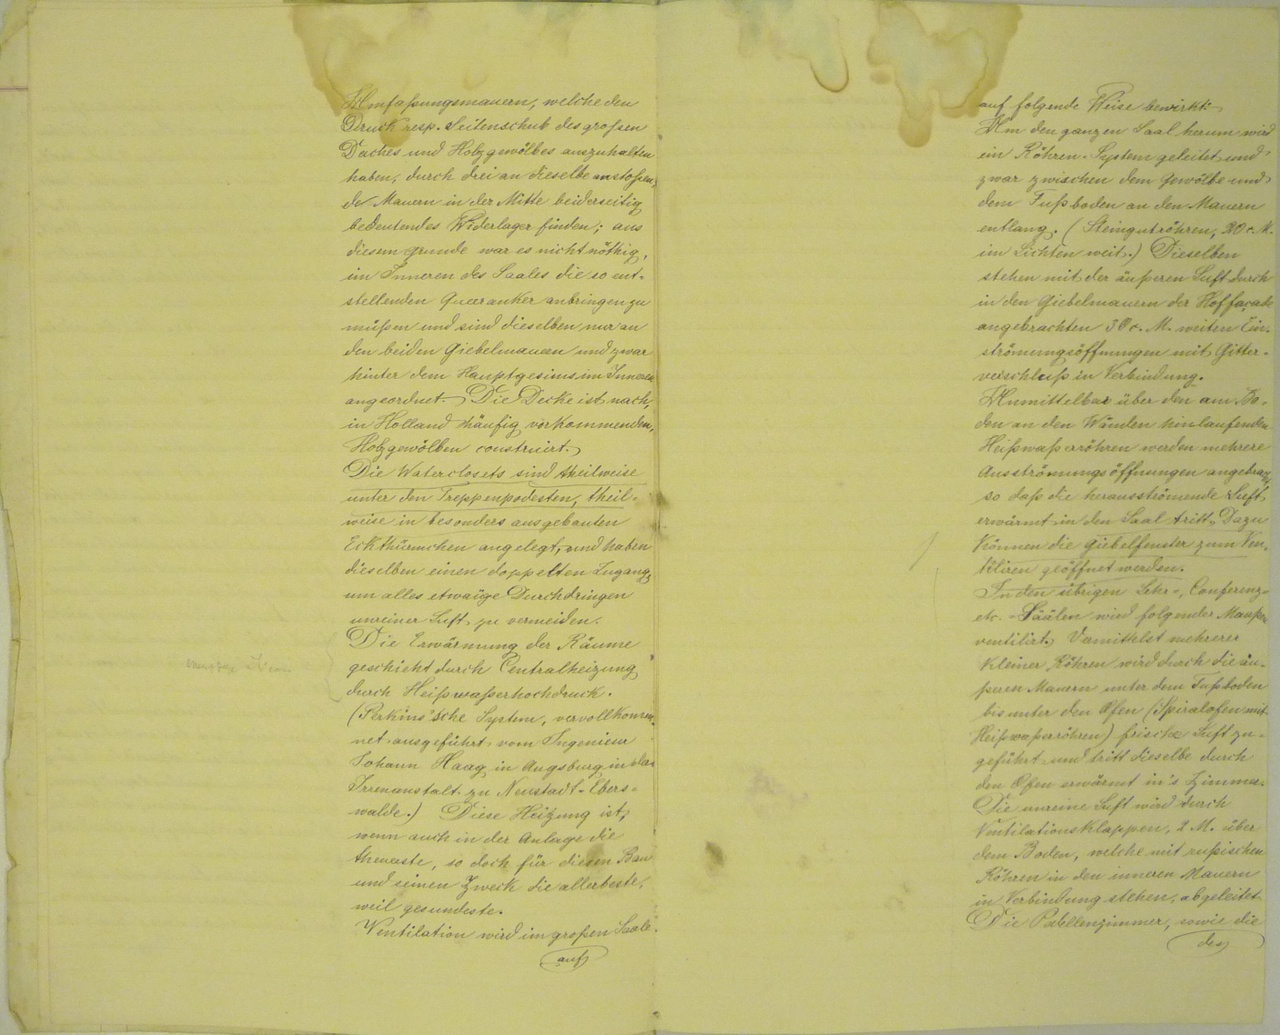 Umfaßungsmauern, welche den
Druck resp. Seitenschub des großen
Daches und Holzgewölbes auszuhalten
haben, durch drei an dieselbe anstoßen
de Mauern in der Mitte beiderseitig
bedeutendes Widerlager finden; aus
diesem Grunde war es nicht nöthig,
im Inneren des Saales die so ent-
stellenden Queranker anbringen zu
müßen und sind dieselben nur an
den beiden Giebelmauern und zwar
hinter dem Hauptgesims im Inneren
angeordnet. Die Decke ist nach,
in Holland häufig vorkommenden,
Holzgewölben construirt.
Die Waterclosets sind theilweise
unter den Treppenpodesten, theil-
weise in besonders ausgebauten
Eckthürmchen angelegt, und haben
dieselben einen doppelten Zugang,
um alles etwaige Durchdringen
unreiner Luft zu vermeiden.
Die Erwärmung der Räume
geschieht durch Centralheizung
durch Heißwaßerhochdruck.
(Perkins'sche System, vervollkomm
net ausgeführt vom Ingenieur
Johann Haag in Augsburg in der
Irrenanstalt zu Neustadt-Ebers-
walde.) Diese Heizung ist,
wenn auch in der Anlage die
theuerste, so doch für diesen Bau
und seinen Zweck die allerbeste,
weil gesundeste.
Ventilation wird im großen Saale
auf
auf folgende Weise bewirkt:
Um den ganzen Saal herum wird
ein Röhren-System geleitet und
zwar zwischen dem Gewölbe und
dem Fußboden an den Mauern
entlang. (Steingutröhren, 20 c. M.
im Lichten weit.) Dieselben
stehen mit der äußeren Luft durch
in den Giebelmauern der Hoffaçade
angebrachten 30 c. M. weiten Ein-
strömungsöffnungen mit Gitter-
verschluß in Verbindung.
Unmittelbar über den am Bo-
den an den Wänden hinlaufenden
Heißwaßerröhren werden mehrere
Ausströmungsöffnungen angebracht
so daß die herausströmende Luft
erwärmt in den Saal tritt. Dazu
können die Giebelfenster zum Ven-
tiliren geöffnet werden.
In den übrigen Lehr-, Conferenz-
etc. Säälen wird folgender Maaßen
ventilirt. Vermittelst mehrerer
kleiner Röhren wird durch die äu-
ßeren Mauern unter dem Fußboden
bis unter den Ofen (Spiralofen mit
Heißwaßerröhren) frische Luft zu-
geführt und tritt dieselbe durch
den Ofen erwärmt in's Zimmer.
Die unreine Luft wird durch
Ventilationsklappen, 2 M. über
dem Boden, welche mit rußischen
Röhren in den inneren Mauern
in Verbindung stehen, abgeleitet.
Die Pedellenzimmer, sowie die
des